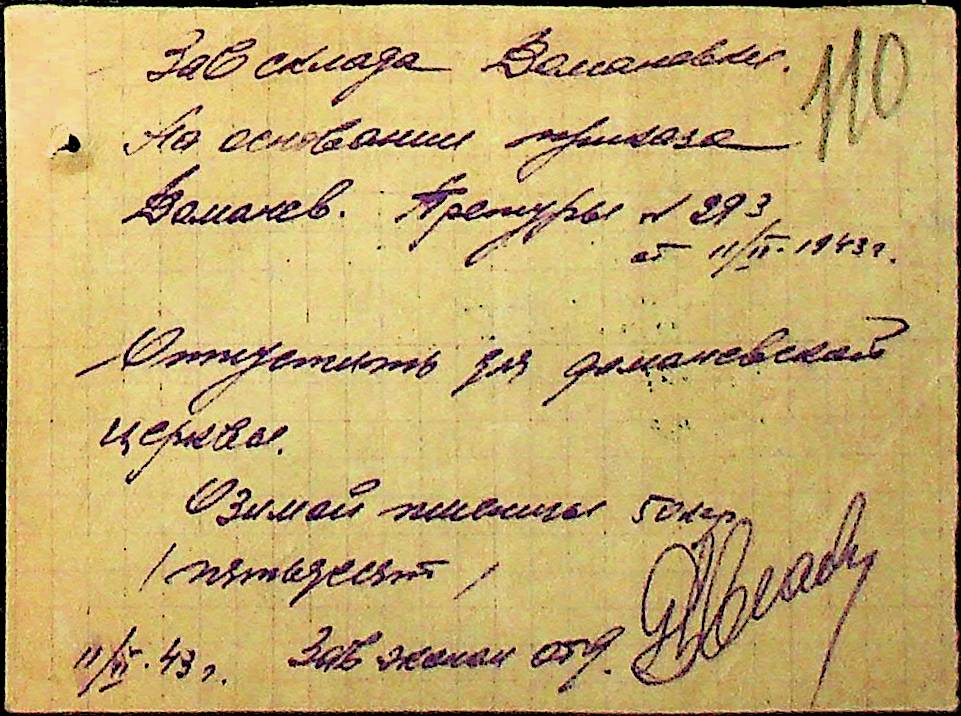 Зав склада Доманевки.
110
На основании приказа
Доманев. Претуры № 293
от 11/II-1943 г.
Отпустить для домановской
церквы.
Озимой пшеницы 50 кгр
/ пятьдесят /
11/II-43 г. Зав эконом отд.